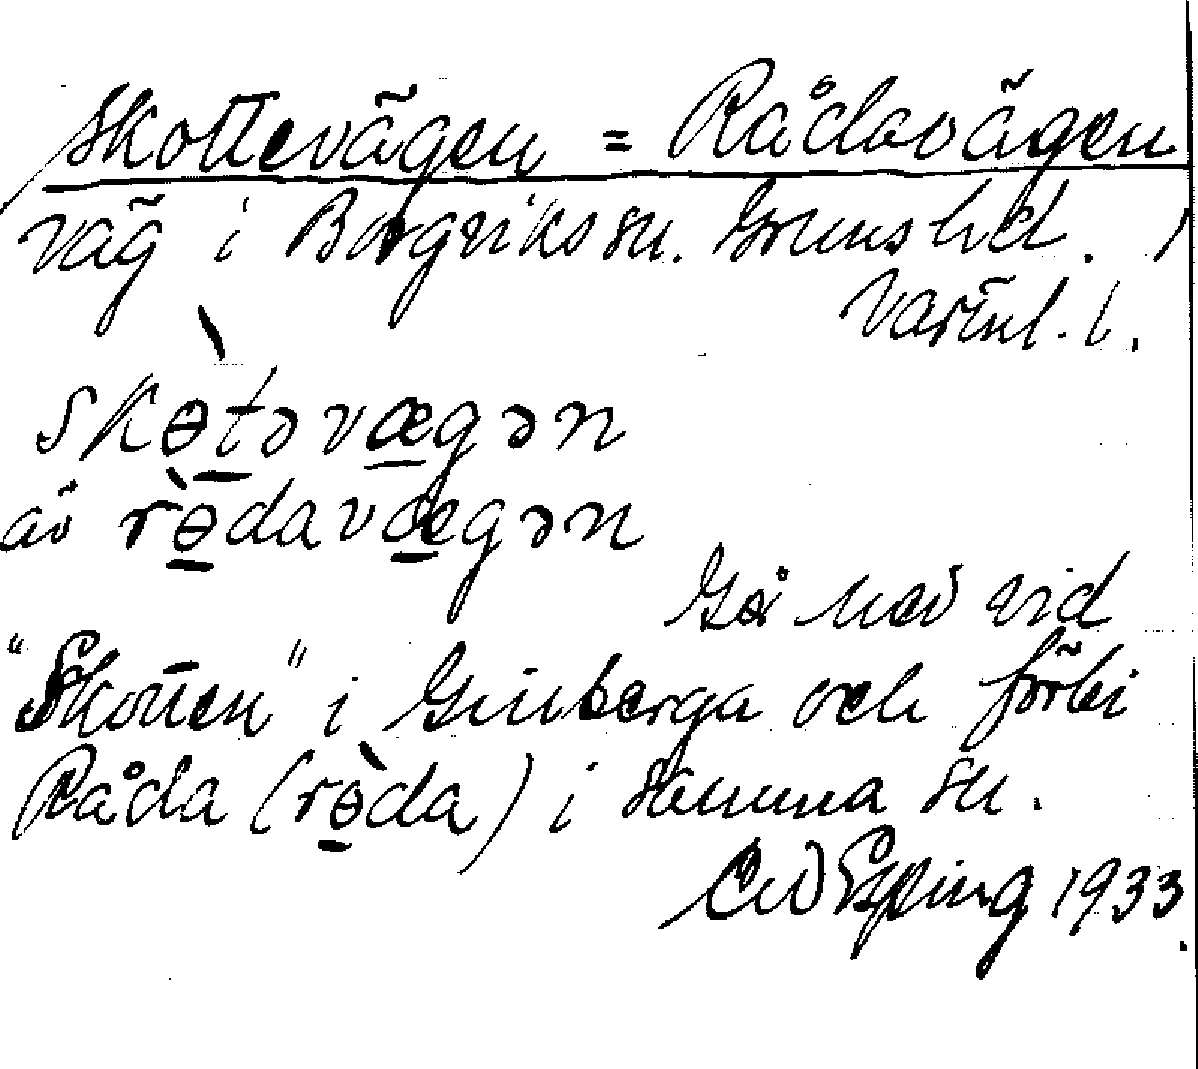 Skottevägen = Rådavägen
väg i Borgviks sn. Grums hd.
Värml. l.
skɵtəvægən
äv rɵ̀davægən
Gå ned vid
"Skotten" i Ginberga och förbi
Råda (rɵ̀da) i samma sn.
Epping 1933